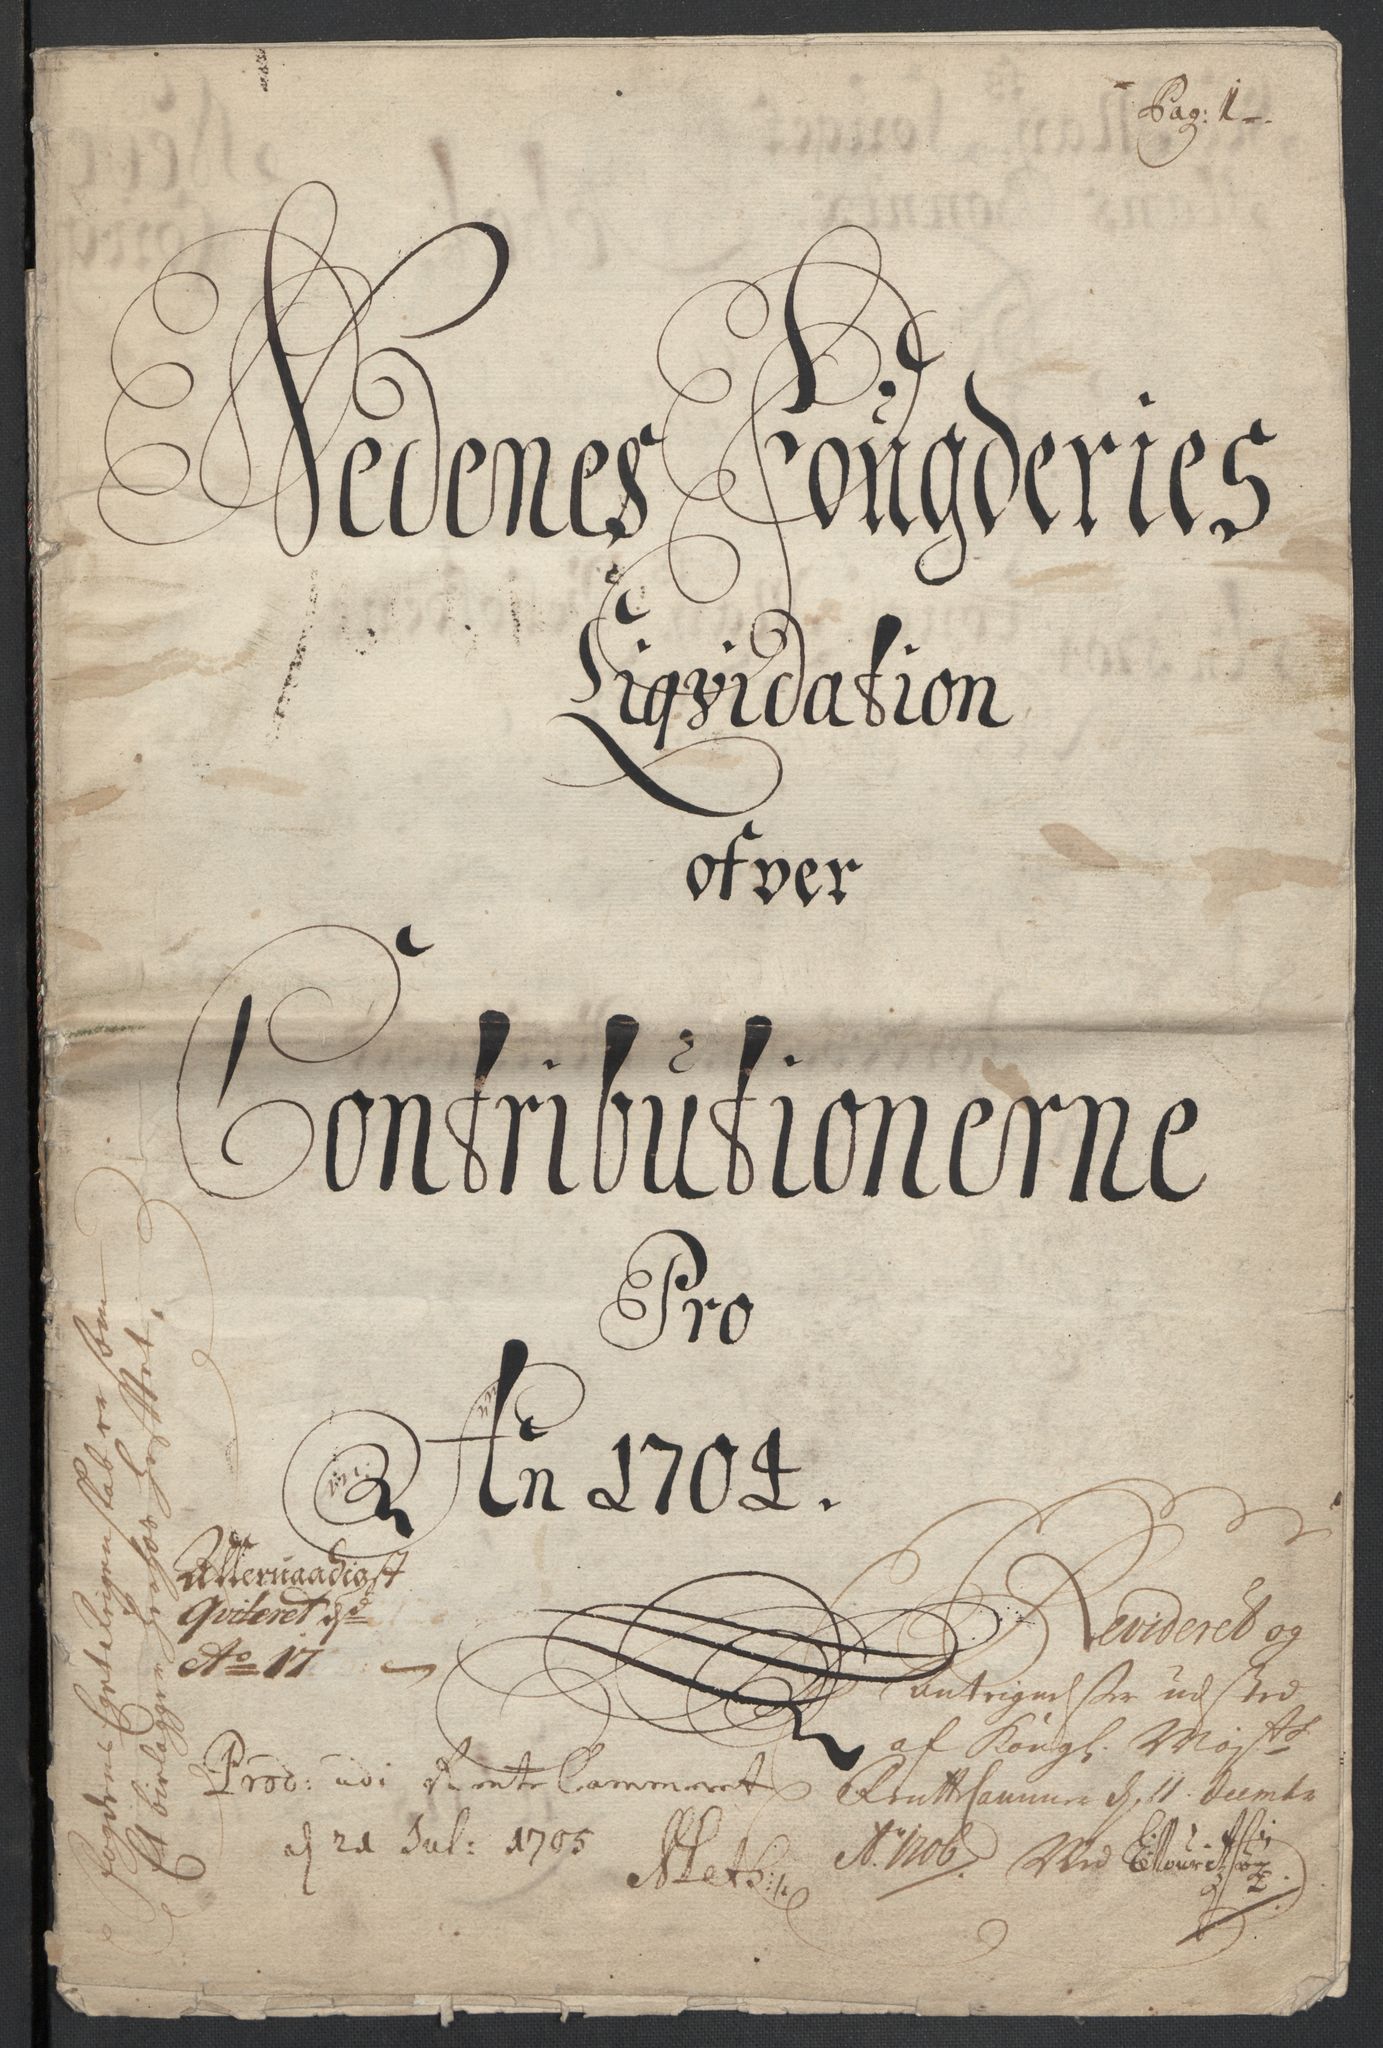 Pag: 1
Nedenes Fougderies
Liqvidation
ofver
Contributionerne
Pro
An 1704.
Allernaadigst
qviteret d
Ao 17
Prod: udi Rente Cammeret
d 21 Jul: 1705
Revideret og
antegnelser udsted
af Kongl. Mayts
Rentte Cammer d 11 Decembr
Ao 1706. Ved
Fogdens Egenhendige som